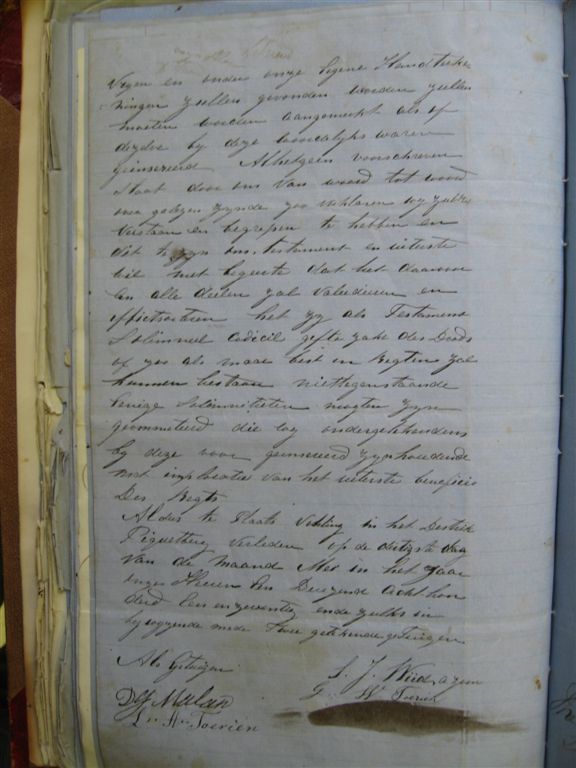 Vegen en onder onze Eigene Handteke
ningen zullen gevonden worden zullen
moeten worden aangemerkt als of
dezelve by deze woordelijks waren
geinsereerd Alhetgein voorschreven
staat door ons van woord tot woord
over gelezen zynde zoo verklaren wy zulks
verstaan en begrepen te hebben en
dit te zyn ons testament en uiterste
wil met begeerte dat het daarom
in alle deelen zal valideeren en
effectsorteren het zy als Testament
Solimneel codicil gifte zake des Doods
of zoo als maar best in Regten zal
kunnen bestaan niettegenstaande
Eenige Solimniteiten mogten zyn
geommiteerd die wy ondergetekendens
by deze voor geinsereerd zyn houdende
met imploratie van het uiterste beneficie
Des Regts
Aldus te plaats in het Destrik
Piquetberg verleden op de dertigste dag
van de Maand Mei in het Jaar
onzes Heeren Een Duizende acht hon
derd Een en zeventig ende zulks in
by zyn de mede twee getekende getuigen
Als Getuigen S. J. Wiid
W Toerien
DJ Malan
L Toerien